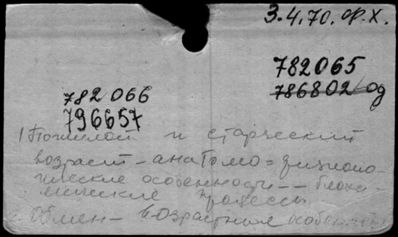 3.4.70. ф.х.
782065
786802 од
782066
796657
1 Пожилой и старческий
возраст - анатомо = физиоло-
гические особенности -- биохи-
мические процессы
Обмен - возрастные особен